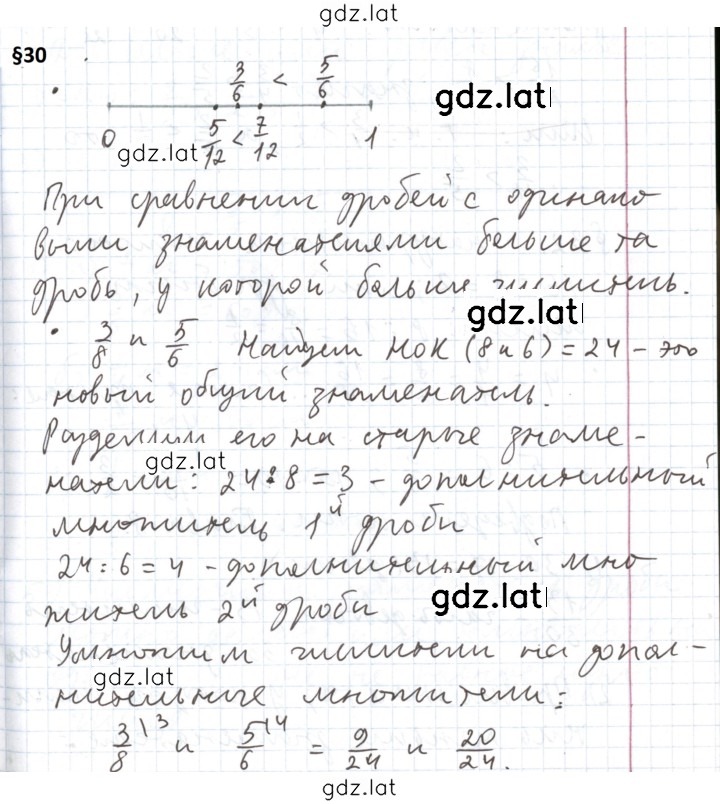 gdz.lat
§30
3/6 < 5/6
gdz.lat
0 5/12 < 7/12 1
gdz.lat
При сравнении дробей с одинако
выми знаменателями больше та
дробь, у которой больше числитель.
gdz.lat
• 3/8 и 5/6 Найдем НОК (8 и 6) = 24 – это
новый общий знаменатель.
Разделили его на старые знаме-
gdz.lat
натели: 24:8 = 3 – дополнительный
множитель 1й дроби
24:6 = 4 – дополнительный мно
gdz.lat
житель 2й дроби
Умножим числители на допол-
gdz.lat
нительные множители:
3/8\3 и 5/6\4 = 9/24 и 20/24.
gdz.lat